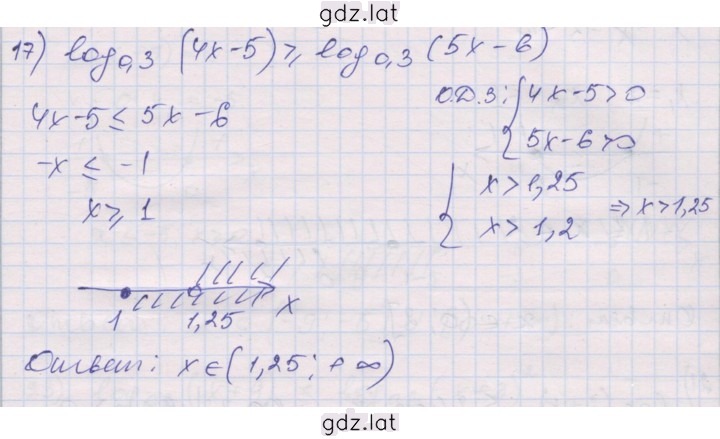 gdz.lat
17) log0,3 (4x-5) ≥ log0,3 (5x-6)
4x-5 ≤ 5x-6
-x ≤ -1
x ≥ 1
О.Д.З: { 4x-5>0
5x-6>0
{ x>1,25
x>1,2 ⇒ x>1,25
1 1,25 x
Ответ: x∈(1,25; +∞)
gdz.lat